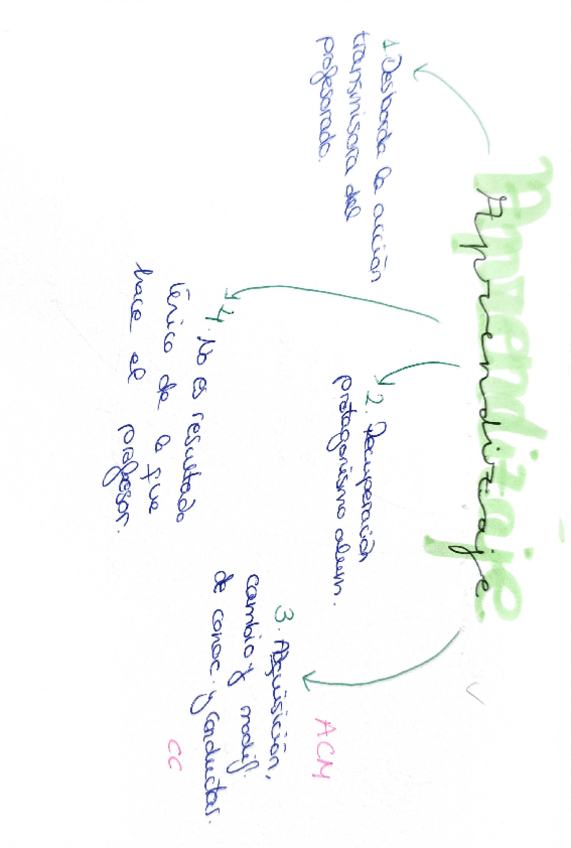 Aprendizaje
1. Desborda la acción
transmisora del
profesorado.
2. Recuperación
protagonismo alum.
3. Adquisición,
cambio y modif.
de conoc. y conductas.
ACM
CC
4. No es resultado
ténico de lo que
hace el profesor.